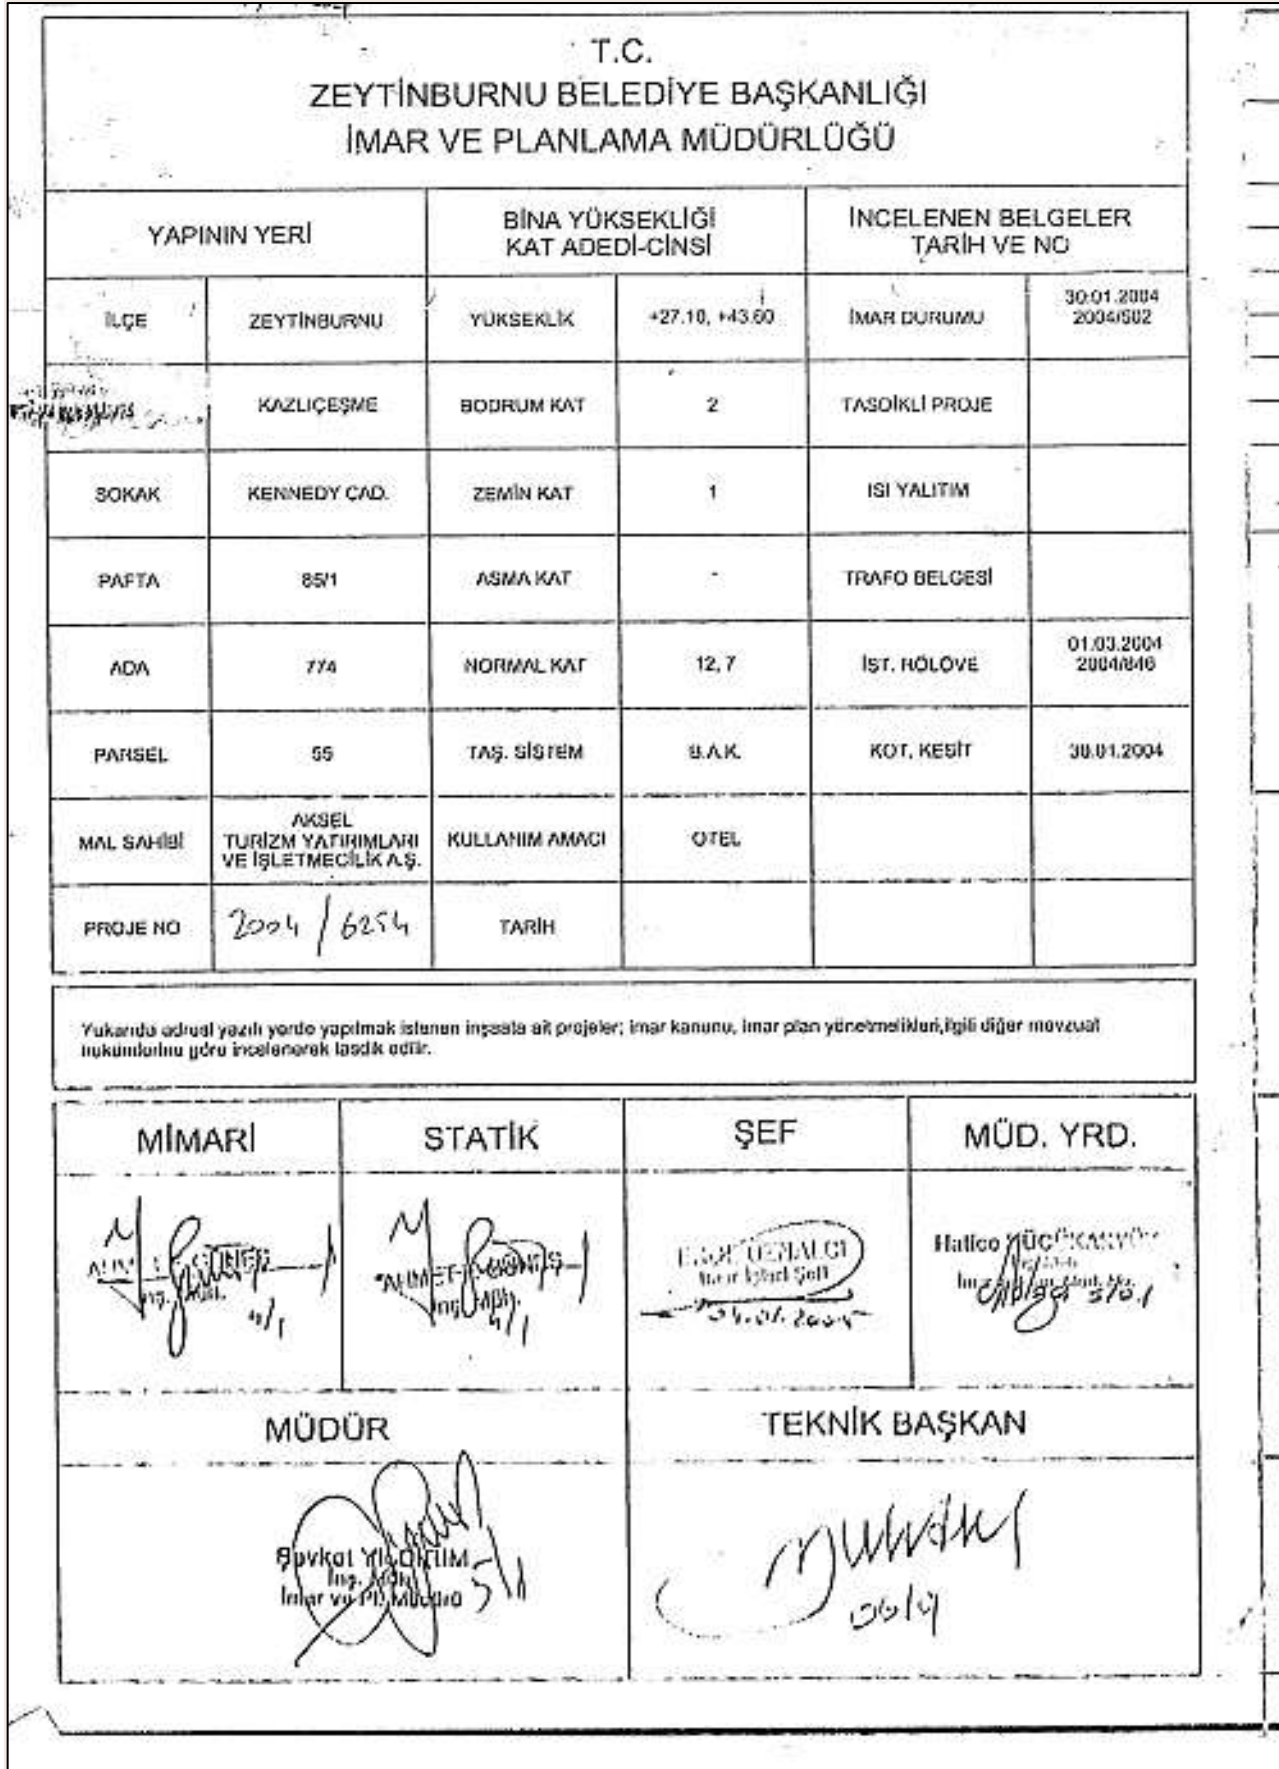 T.C.
ZEYTİNBURNU BELEDİYE BAŞKANLIĞI
İMAR VE PLANLAMA MÜDÜRLÜĞÜ
YAPININ YERİ
BİNA YÜKSEKLİĞİ
KAT ADEDİ-CİNSİ
İNCELENEN BELGELER
TARİH VE NO
İLÇE ZEYTİNBURNU YÜKSEKLİK +27.10, +43.60 İMAR DURUMU 30.01.2004
2004/502
KAZLIÇEŞME BODRUM KAT 2 TASDİKLİ PROJE
SOKAK KENNEDY CAD. ZEMİN KAT 1 ISI YALITIM
PAFTA 85/1 ASMA KAT - TRAFO BELGESİ
ADA 774 NORMAL KAT 12, 7 İST. RÖLÖVE 01.03.2004
2004/846
PARSEL 55 TAŞ. SİSTEM B.A.K. KOT. KESİT 30.01.2004
MAL SAHİBİ AKSEL
TURİZM YATIRIMLARI
VE İŞLETMECİLİK A.Ş.
KULLANIM AMACI OTEL
PROJE NO 2004 / 6254 TARİH
Yukarıda adresi yazılı yerde yapılmak istenen inşaata ait projeler; imar kanunu, imar plan yönetmelikleri,ilgili diğer mevzuat
hükümlerine göre incelenerek tasdik edilir.
MİMARİ STATİK ŞEF MÜD. YRD.
AHMET
İnş. Müh.
İmar İşleri Şefi
04.01.2005
Hatice
MÜDÜR TEKNİK BAŞKAN
Şevket YILDIRIM
İnş. Müh.
İmar ve Pl. Müdürü
5/1